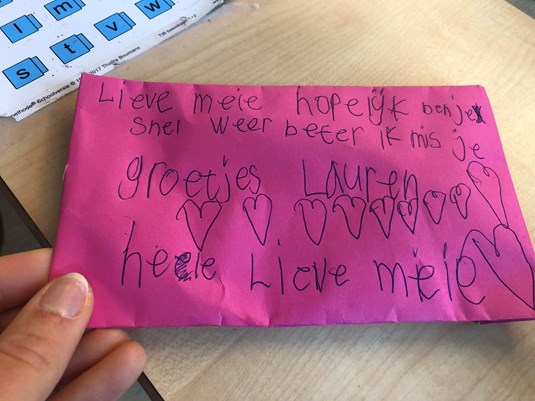 l m
s t v w
Lieve meie hopelijk ben je
snel weer beter ik mis je
groetjes Lauren
heele Lieve meie